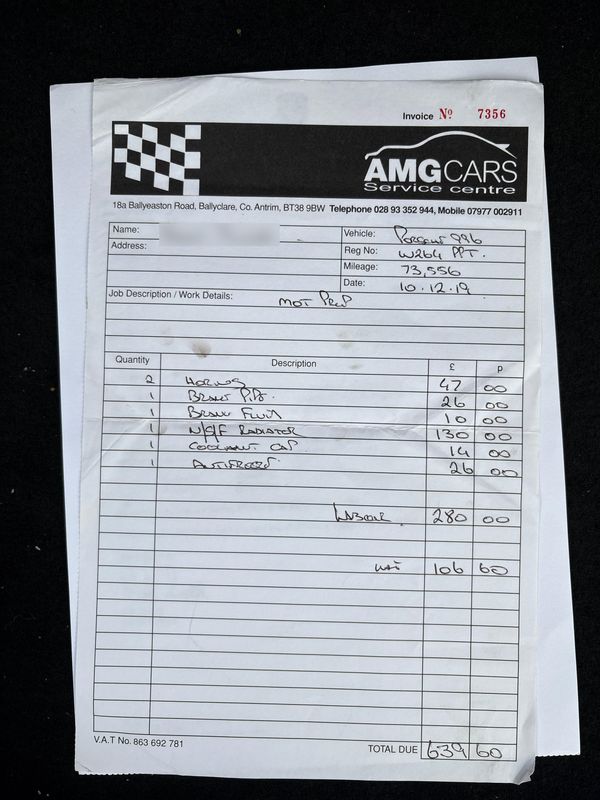 Invoice Nº 7356
AMGCARS
Service centre
18a Ballyeaston Road, Ballyclare, Co. Antrim, BT38 9BW Telephone 028 93 352 944, Mobile 07977 002911
Name: Vehicle: Porsche 996
Address: Reg No: W264 PPT.
Mileage: 73,556
Date: 10.12.19
Job Description / Work Details: MOT Prep
Quantity Description £ p
2 Horns 47 00
1 Brake Pipe. 26 00
1 Brake Fluid 10 00
1 N/S/F Radiator 130 00
1 Coolant Cap 14 00
1 Antifreeze 26 00
Labour 280 00
VAT 106 60
V.A.T No. 863 692 781 TOTAL DUE 639 60